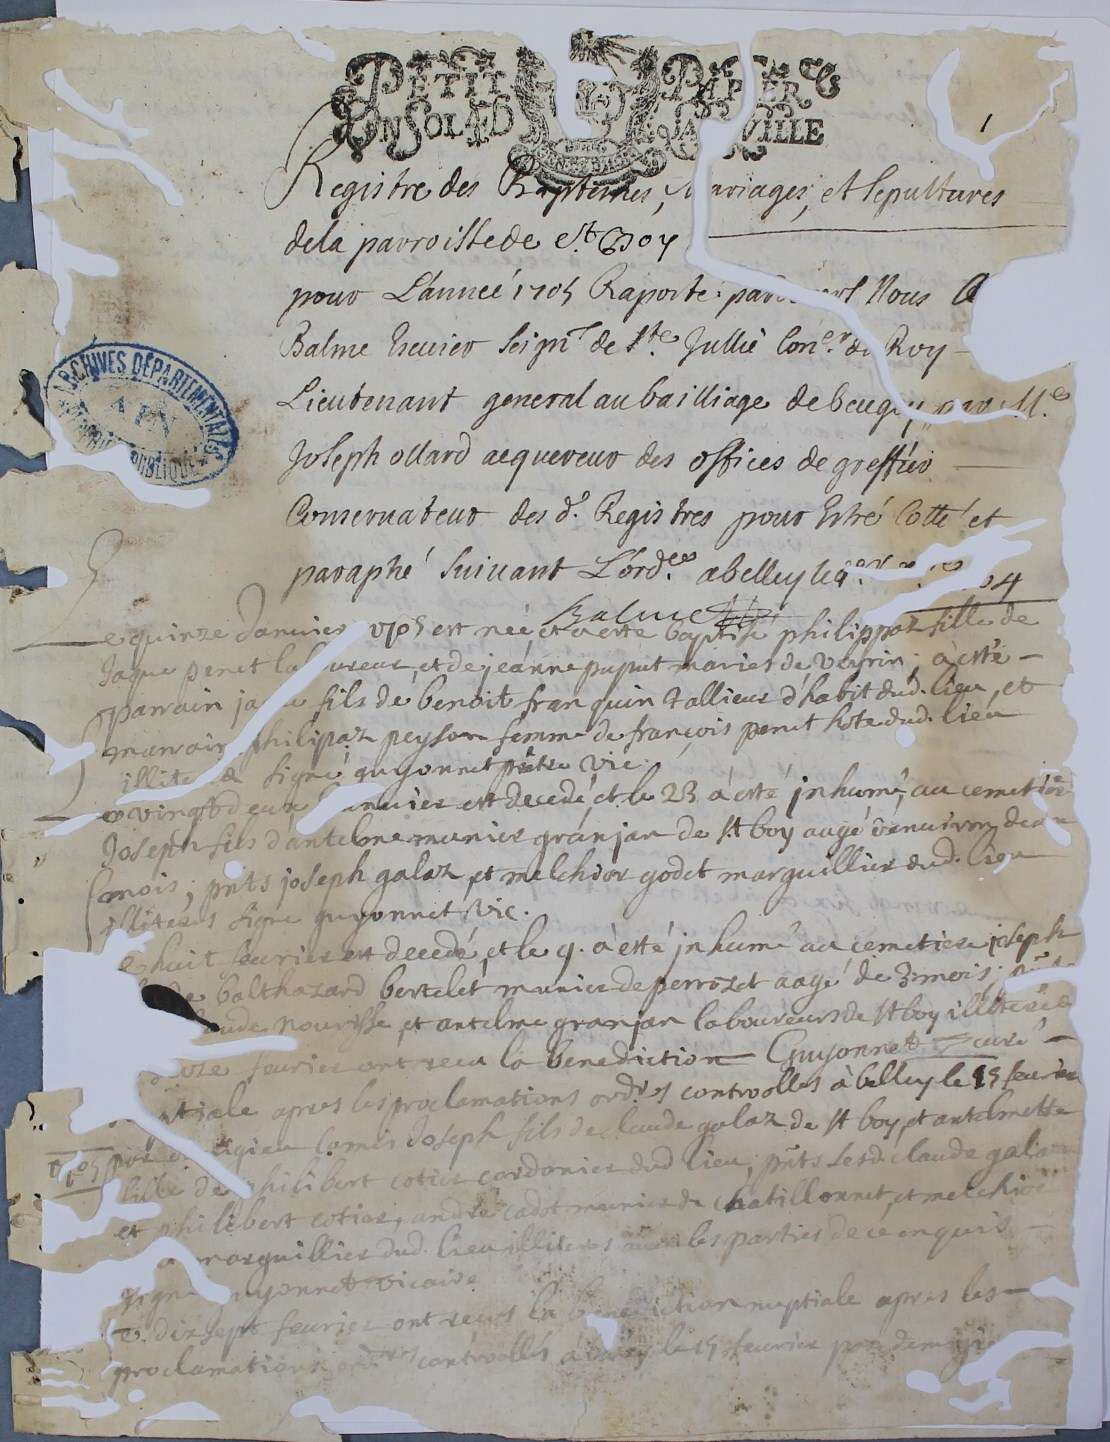 PETIT PAPIER
UN SOL VILLE
1
Registre des Baptemes, Mariages, et sepultures
dela parroisse de St Boy
pour L'année 1705 Raporté pardevant Nous
Balme Escuier Seigr de Ste Jullie Coner du Roy
Lieutenant general au bailliage de beugey par Me
Joseph ollard acquereur des offices de greffier
Conservateur des ds Registres pour Estre Cotté et
paraphé suivant L'ordce a belley le
Balme
ARCHIVES DÉPARTEMENTALES
AIN
e quinze Janvier 1705 est née et a esté baptisé philippaz fille de
Jaque penet laboureur et de jeanne puput mariés de veyrin, à esté
parrain fils de benoit franquin tallieur d'habit dud. lieu, et
marraine philipaz peyson femme de françois penet hote dud. lieu
illiteré signé guyonnet prstre vic.
e vingtdeux Janvier est decedé et le 23 à esté jnhumé, au cemetiere
Joseph fils d'antelme munier granjan de st boy augé
mois, pnts joseph galaz et melchior godet marguillier dud. lieu
jlliterés signé guyonnet vic.
e huit fevrier est decedé, et le 9. à esté jnhumé au cemetiere joseph
de balthazard bertelet munier de perrozet aagé de 3 mois,
claude nourisse et antelme granjan laboureurs de st boy illiterés
fevrier ont receu la benediction Guyonnet curé
nuptiale apres les proclamations ordres controollés à belley le 15 fevrier
1705
Joseph fils de claude galaz de st boy, et antelmette
fille de philibert cotier cordonier dud lieu, pnts lesd claude galaz
et philibert cotier, andré cadot munier de chatillonnet, et melchior
marguillier dud. lieu illiterés avec les parties de ce enquis
signé guyonnet vicaire
e dixsept fevrier ont receus la benediction nuptiale apres les
proclamations controollés à belley le 15 fevrier par